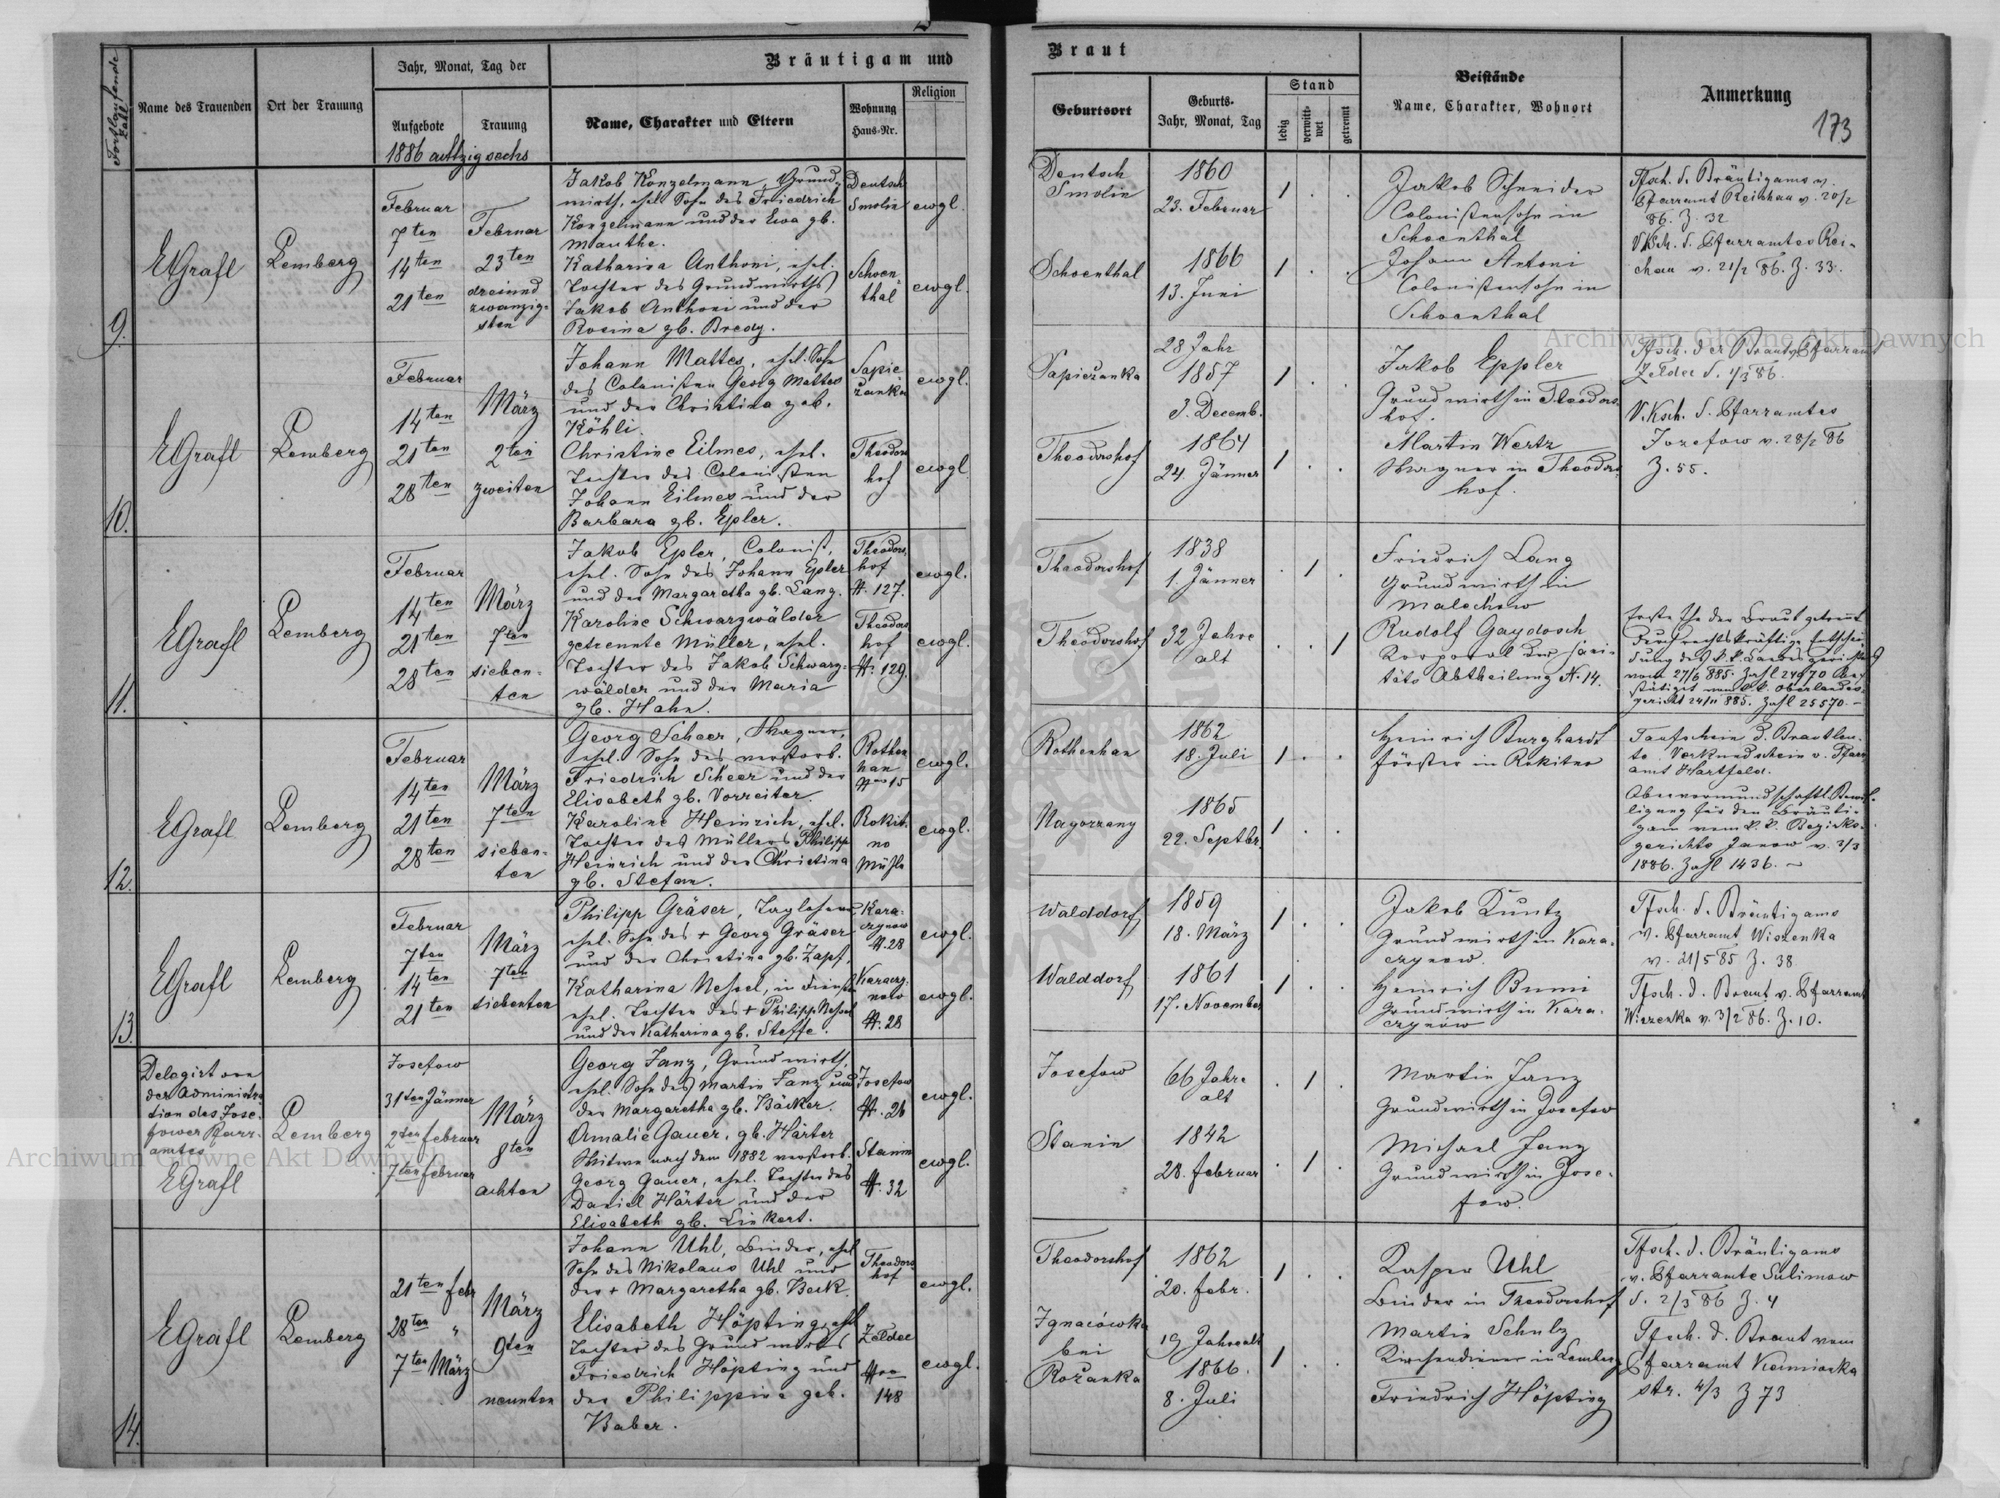 Fortlaufende Zahl
Name des Trauenden
Ort der Trauung
Jahr, Monat, Tag der
Aufgebote
Trauung
1886 achtzig sechs
Bräutigam und
Name, Charakter und Eltern
Wohnung
Haus-Nr.
Religion
Braut
Geburtsort
Geburts-
Jahr, Monat, Tag
Stand
ledig
verwitt-
wet
getrennt
Beistände
Name, Charakter, Wohnort
Anmerkung
173
9.
EGrafl
Lemberg
Februar
7ten
14ten
21ten
Februar
23ten
dreiund
zwanzig-
sten
Jakob Konzelmann, Grund-
wirth, ehel. Sohn des Friedrich
Konzelmann und der Ewa gb.
Manthe.
Katharina Anthoni, ehel.
Tochter des Grundwirths
Jakob Anthoni und der
Rosina gb. Bredy.
Deutsch
Smolin
Schoen
thal
ewgl.
ewgl.
Deutsch
Smolin
Schoenthal
1860
23. Februar
1866
13. Juni
1 . .
1 . .
Jakob Schneider
Colonistensohn in
Schoenthal
Johann Antoni
Colonistensohn in
Schoenthal
Tfsch. d. Bräutigams v.
Pfarramt Reichau v. 20/2
86. Z. 32
V.Ksch. d. Pfarramtes Rei-
chau v. 21/2 86. Z. 33.
10.
EGrafl
Lemberg
Februar
14ten
21ten
28ten
März
2ten
zweiten
Johann Mattes, ehel. Sohn
des Colonisten Georg Mattes
und der Christina geb.
Köhli.
Christine Eilmes, ehel.
Tochter des Colonisten
Johann Eilmes und der
Barbara gb. Epler.
Sapie
zanka
Theodors
hof
ewgl.
ewgl
Sapiezanka
Theodorshof
28 Jahr
1857
3. Decemb.
1864
24. Jänner
1 . .
1 . .
Jakob Eppler
Grundwirth in Theodors
hof.
Martin Wertz
Wagner in Theodors
hof.
Tfsch. der Braut v. Pfarramt
Zeldec d. 1/3 86.
V.Ksch. d. Pfarramtes
Josefow v. 28/2 86
Z. 55.
11.
EGrafl
Lemberg
Februar
14ten
21ten
28ten
März
7ten
sieben-
ten
Jakob Epler, Colonist,
ehel. Sohn des Johann Epler
und der Margaretha gb. Lang.
Karoline Schwarzwälder
getrennte Müller, ehel.
Tochter des Jakob Schwarz-
wälder und der Maria
gb. Hahn.
Theodors
hof
N. 127.
Theodors
hof
N. 129.
ewgl.
ewgl.
Theodorshof
Theodorshof
1838
1. Jänner
32 Jahre
alt
. 1 .
. . 1
Friedrich Lang
Grundwirth in
Malechow
Rudolf Gaydosch
Korporal der Sani-
täts Abtheilung N. 14.
Erste Ehe der Braut getrennt
durch rechtskräftige Entschei-
dung des k.k. Landesgerichtes
vom 27/6 885. Zahl 24970 be-
stätiget vom k.k. Oberlandes-
gericht 24/11 885. Zahl 25570.
12.
EGrafl
Lemberg
Februar
14ten
21ten
28ten
März
7ten
sieben-
ten
Georg Scheer, Wagner,
ehel. Sohn des verstorb.
Friedrich Scheer und der
Elisabeth gb. Vorreiter.
Karoline Heinrich, ehel.
Tochter des Müllers Philipp
Heinrich und der Christina
gb. Stefan.
Rothen
han
Nro 15
Rokit-
no
Mühle
ewgl.
ewgl.
Rothenhan
Nagorzany
1862
18. Juli
1865
22. Septbr.
1 . .
1 . .
Heinrich Burghardt
Förster in Rokitno
Taufschein d. Brautleu-
te. Verkundschein v. Pfarr
amt Hartfeld.
Obervormundschaftl. Bewil-
ligung für den Bräuti-
gam vom k.k. Bezirks-
gerichte Janow v. 2/3
1886. Zahl 1436.
13.
EGrafl
Lemberg
Februar
7ten
14ten
21ten
März
7ten
siebenten
Philipp Gräser, Taglöhner
ehel. Sohn des + Georg Gräser
und der Christina gb. Zapf.
Katharina Nessel, in Diensten
ehel. Tochter des + Philipp Nessel
und der Katharina gb. Steffe.
Kara-
czynow
N. 28
Karaczy-
now
N. 28
ewgl.
ewgl.
Walddorf
Walddorf
1859
18. März
1861
17. November
1 . .
1 . .
Jakob Kuntz
Grundwirth in Kara-
czynow.
Heinrich Bumi
Grundwirth in Kara-
czynow
Tfsch. d. Bräutigams
v. Pfarramt Wiszenka
v. 21/5 85 Z. 38
Tfsch. d. Braut v. Pfarramt
Wiszenka v. 3/2 86. Z. 10.
Delegirt von
der Administra
tion des Jose-
fower Pfarr-
amtes
EGrafl
Lemberg
Josefow
31ten Jänner
2ten Februar
7ten Februar
März
8ten
achten
Georg Janz, Grundwirth,
ehel. Sohn des Martin Janz und
der Margaretha gb. Bäcker.
Amalie Gauer, gb. Härter
Witwe nach dem 1882 verstorb.
Georg Gauer, ehel. Tochter des
Daniel Härter und der
Elisabeth gb. Linkert.
Josefow
N. 26
Stanin
N. 32
ewgl.
ewgl.
Josefow
Stanin
66 Jahre
alt
1842
28. Februar
. 1 .
. 1 .
Martin Janz
Grundwirth in Josefow
Michael Janz
Grundwirth in Jose-
fow.
14.
EGrafl
Lemberg
21ten Febr
28ten "
7ten März
März
9ten
neunten
Johann Uhl, Binder, ehel
Sohn des Nikolaus Uhl und
der + Margaretha gb. Beck.
Elisabeth Höpting, ehl
Tochter des Grundwirts
Friedrich Höpting und
der Philippina geb.
Weber.
Theodors
hof
Zeldec
Nro
148
ewgl.
ewgl.
Theodorshof
Ignacówka
bei
Rożanka
1862
20. Febr.
19 Jahre alt
1866.
8. Juli
1 . .
1 . .
Kasper Uhl
Binder in Theodorshof
Martin Schulz
Kirchendiener in Lemberg
Friedrich Höpting
Tfsch. d. Bräutigams
v. Pfarramte Sulimow
d. 2/3 86 Z. 4
Tfsch. d. Braut vom
Pfarramt Kamionka
str. 4/3 Z 73
Archiwum Główne Akt Dawnych
Archiwum Główne Akt Dawnych